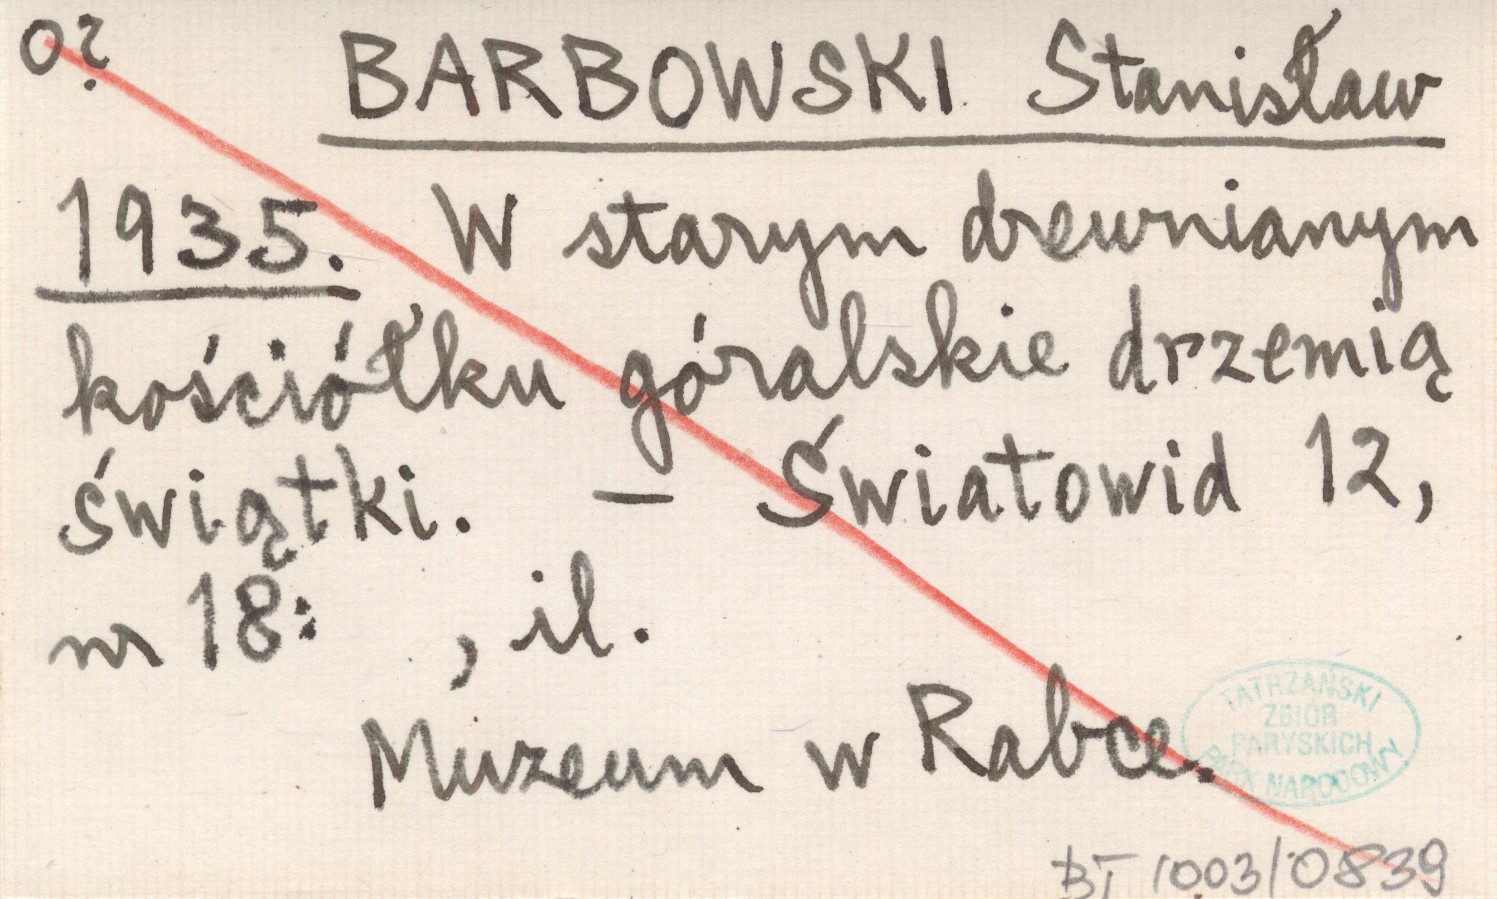 o?
BARBOWSKI Stanisław
1935. W starym drewnianym
kościółku góralskie drzemią
świątki. — Światowid 12,
nr 18: , il.
Muzeum w Rabce.
TATRZAŃSKI
ZBIÓR
PARYSKICH
PARK NARODOWY
BT 1003/0839